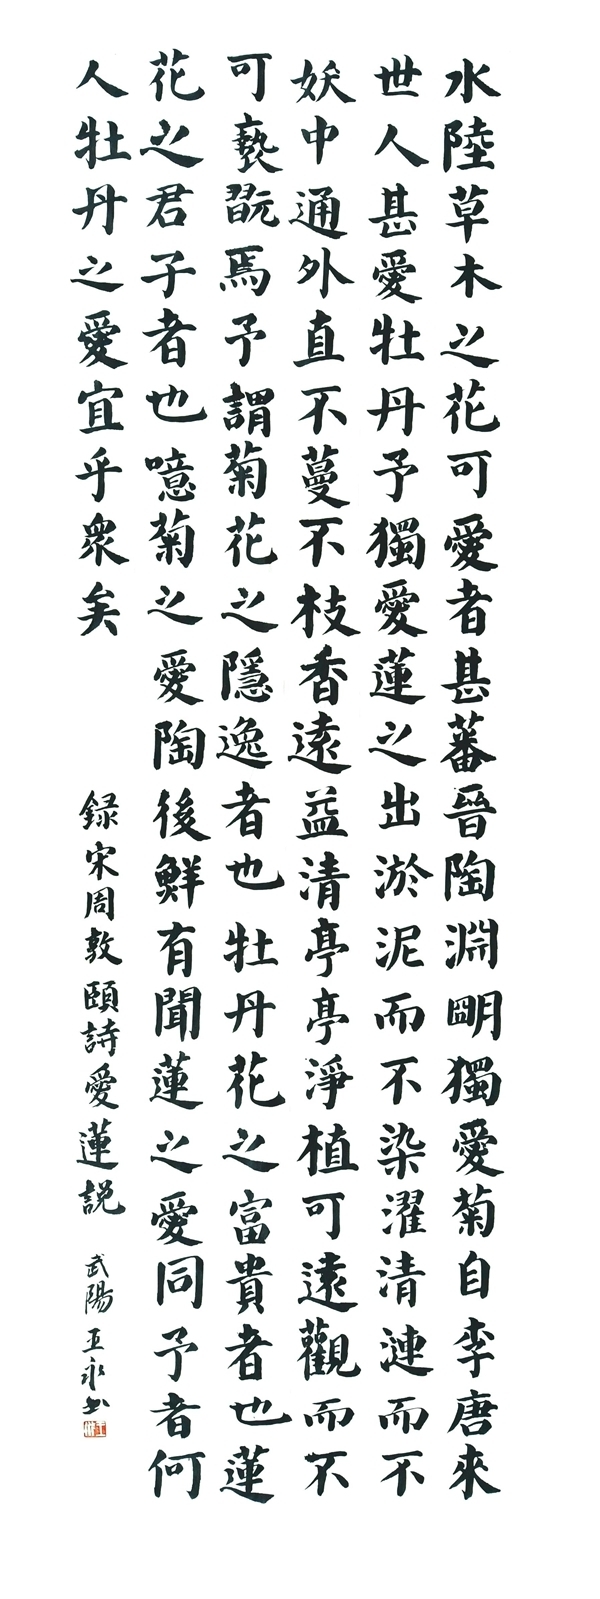 水陸草木之花可愛者甚蕃晉陶淵朙獨愛菊自李唐來
世人甚愛牡丹予獨愛蓮之出淤泥而不染濯清漣而不
妖中通外直不蔓不枝香遠益清亭亭淨植可遠觀而不
可褻翫焉予謂菊花之隱逸者也牡丹花之富貴者也蓮
花之君子者也噫菊之愛陶後鮮有聞蓮之愛同予者何
人牡丹之愛宜乎衆矣
録宋周敦頤詩愛蓮説
武陽王永书